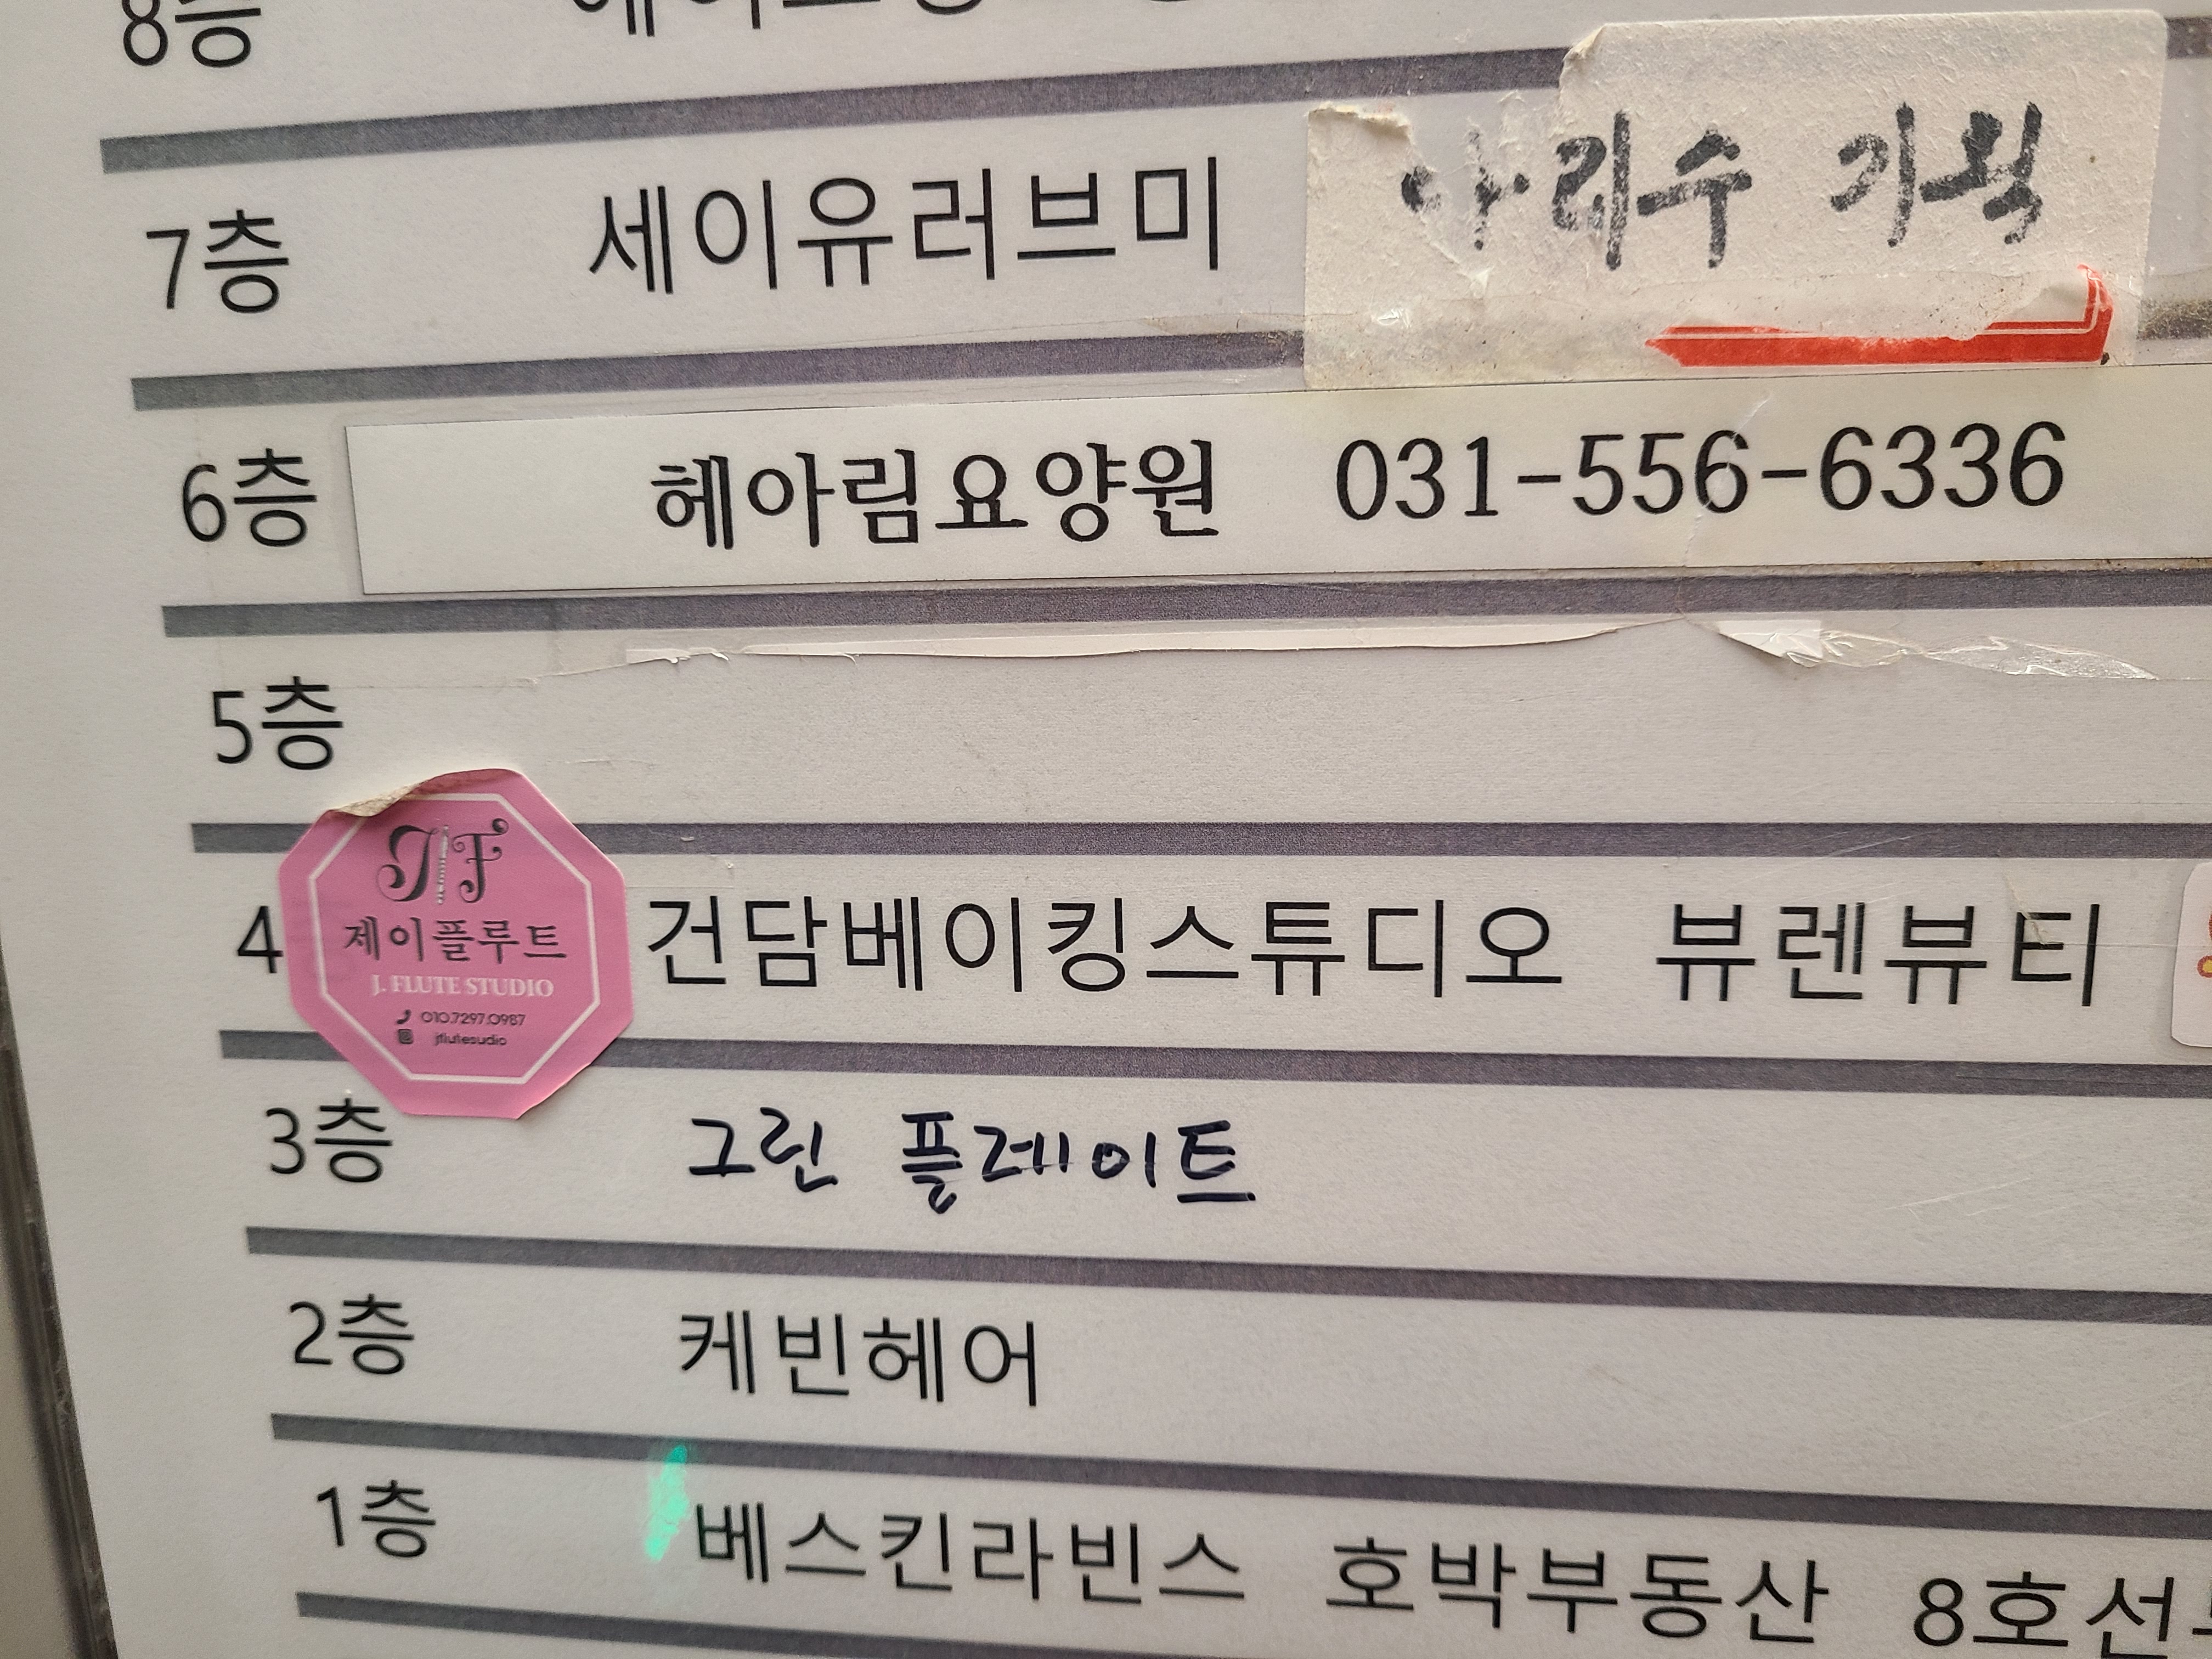 8층
7층 세이유러브미 아리수 기획
6층 헤아림요양원 031-556-6336
5층
4 건담베이킹스튜디오 뷰렌뷰티
JF
제이플루트
J. FLUTE STUDIO
010.7297.0987
jflutesudio
3층 그린 플레이트
2층 케빈헤어
1층 베스킨라빈스 호박부동산 8호선